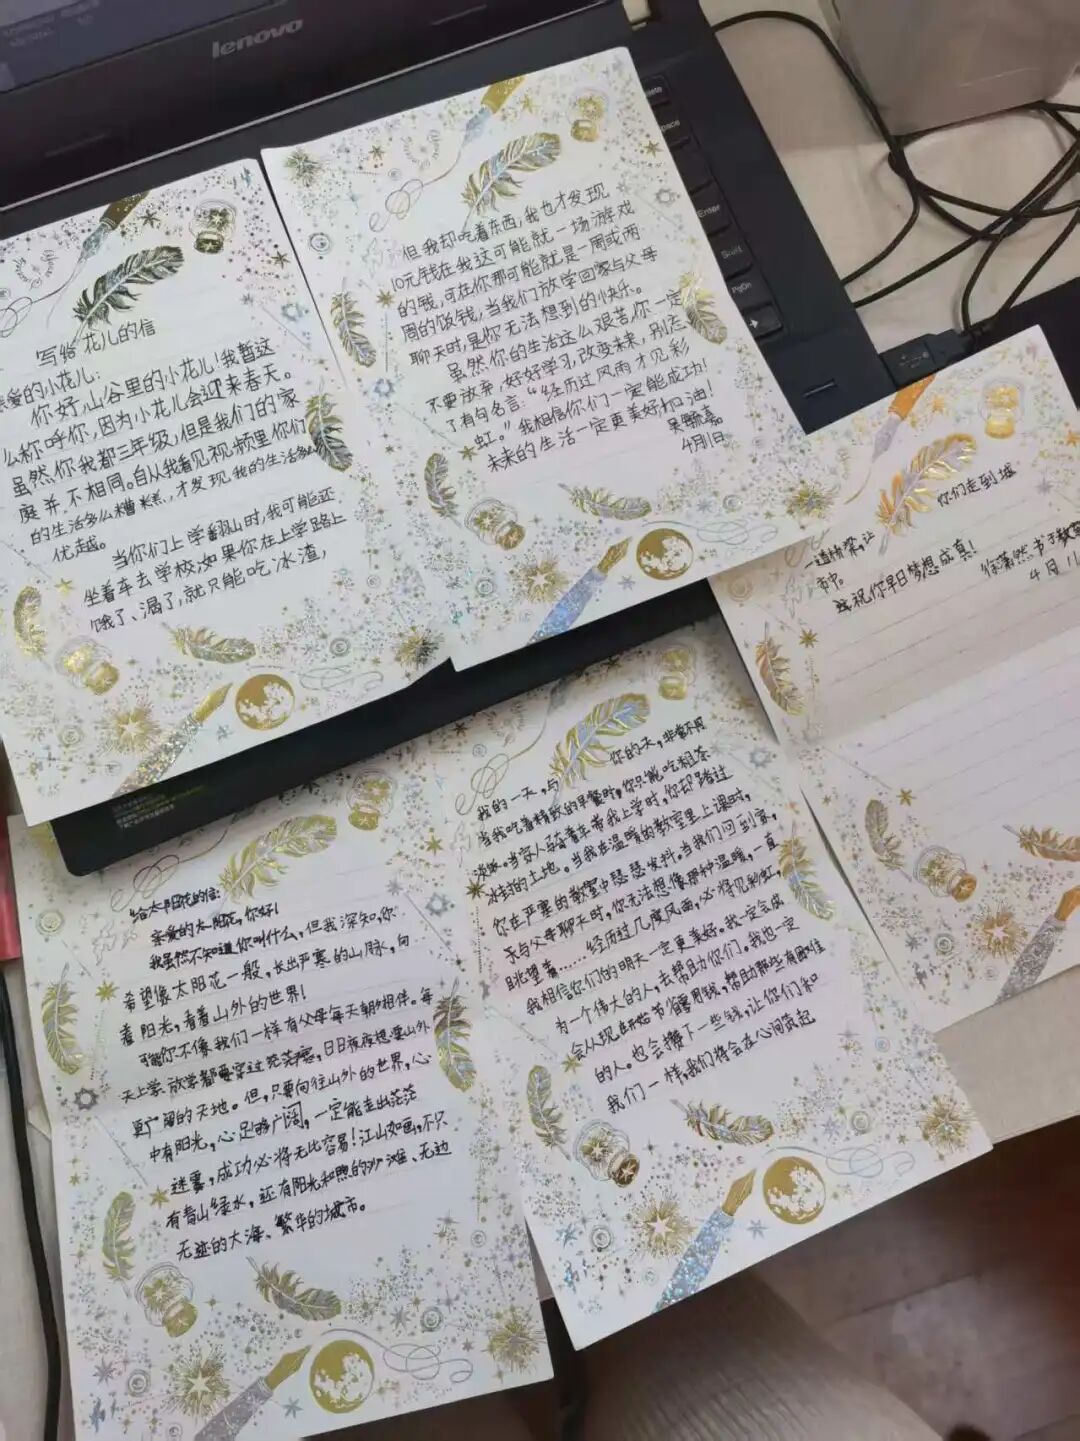 lenovo
写给花儿的信
亲爱的小花儿:
你好,山谷里的小花儿!我暂这
么称呼你,因为小花儿会迎来春天。
虽然你我都三年级,但是我们的家
庭并不相同。自从我看见视频里你们
的生活多么糟糕,才发现我的生活多么
优越。
当你们上学翻山时,我可能还
坐着车去学校,如果你在上学路上
饿了、渴了,就只能吃冰渣,
但我却吃着东西,我也才发现
10元钱在我这可能就一场游戏
的钱,可在你那可能就是一周或两
周的饭钱,当我们放学回家与父母
聊天时,是你无法想到的快乐。
虽然你的生活这么艰苦,你一定
不要放弃,好好学习,改变未来,别忘
了有句名言:“经历过风雨才见彩
虹。”我相信你们一定能成功!
未来的生活一定更美好!加油!
4月1日
Enter
PgDn
你们走到城
一道桥梁,让
市中。
祝你早日梦想成真!
4月11
给太阳花的信:
亲爱的太阳花,你好!
我虽然不知道你叫什么,但我深知,你
希望像太阳花一般,长出严寒的山脉,向
着阳光,看看山外的世界!
可能你不像我们一样有父母每天朝夕相伴。每
天上学、放学都要穿过茫茫雾,日日夜夜想要山外
更广阔的天地。但,只要向往山外的世界,心
中有阳光,心足够广阔,一定能走出茫茫
迷雾,成功必将无比容易!江山如画,不只
有青山绿水,还有阳光和煦的沙滩、无边
无迹的大海、繁华的城市。
我的一天,与你的一天,非常不同
当我吃着精致的早餐时,你只能吃粗茶
淡饭。当家人骑着车带我上学时,你却踏过
冰封的土地。当我在温暖的教室里上课时,
你在严寒的教室中瑟瑟发抖。当我们回到家,
亲与父母聊天时,你无法想像那种温暖,一直
眺望着……经历过几度风雨,必将得见彩虹,
我相信你们的明天一定更美好。我一定会成
为一个伟大的人,去帮助你们。我也一定
会从现在开始节省零用钱,帮助那些有困难
的人。也会攒下一些钱,让你们和
我们一样,我们将会在心间筑起